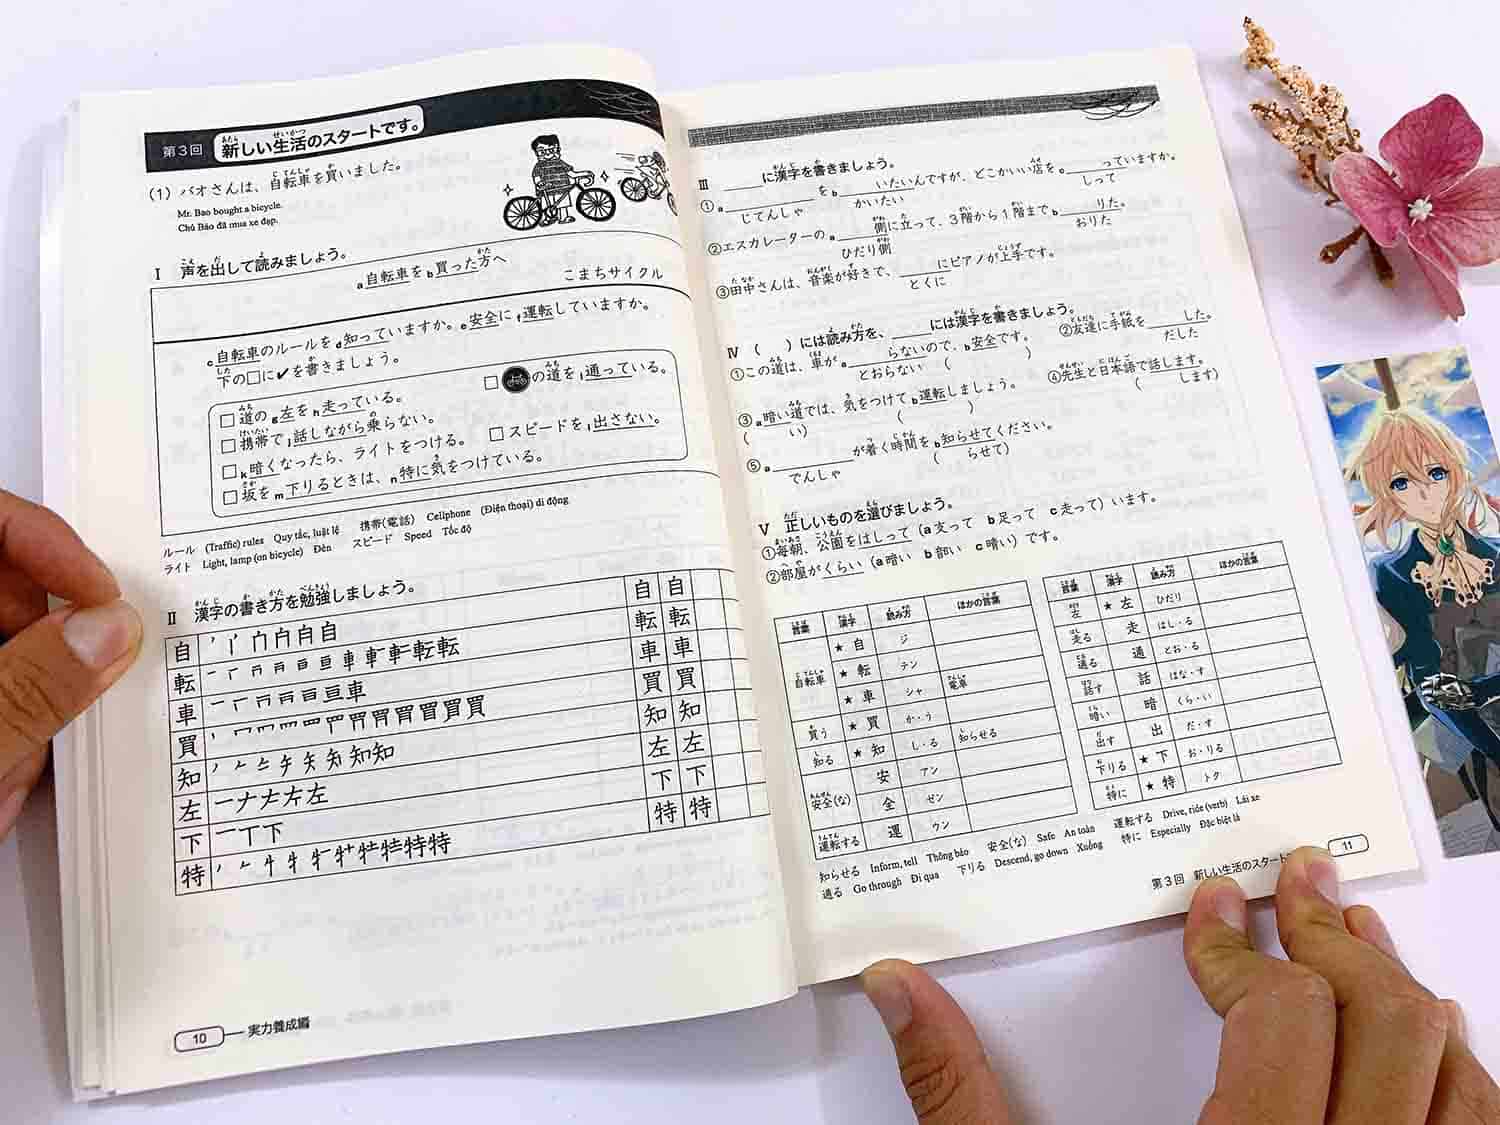 第3回 新しい生活のスタートです。
(1) バオさんは、自転車を買いました。
Mr. Bao bought a bicycle.
Chú Bảo đã mua xe đạp.
Ⅰ 声を出して読みましょう。
a自転車をb買った方へ
こまちサイクル
c自転車のルールをd知っていますか。e安全にf運転していますか。
下の□に✔を書きましょう。
□道のg左をh走っている。
□の道をi通っている。
□携帯でj話しながら乗らない。
□k暗くなったら、ライトをつける。
□スピードをl出さない。
□坂をm下りるときは、n特に気をつけている。
ルール (Traffic) rules Quy tắc, luật lệ 携帯(電話) Cellphone (Điện thoại) di động
ライト Light, lamp (on bicycle) Đèn スピード Speed Tốc độ
Ⅱ 漢字の書き方を勉強しましょう。
自 自 自
転 転 転
車 車 車
買 買 買
知 知 知
左 左 左
下 下 下
特 特 特
10 実力養成編
Ⅲ ____に漢字を書きましょう。
①a____をb____いたいんですが、どこかいい店をc____っていますか。
じてんしゃ かいたい しって
②エスカレーターのa____側に立って、3階から1階までb____りた。
ひだり側 おりた
③田中さんは、音楽が好きで、____にピアノが上手です。
とくに
Ⅳ ( )には読み方を、____には漢字を書きましょう。
①この道は、車がa____らないので、b安全です。
とおらない ( )
②友達に手紙を____した。
だした
③a暗い道では、気をつけてb運転しましょう。
( い) ( )
④先生と日本語で話します。
( します)
⑤a____が着く時間をb知らせてください。
でんしゃ ( らせて)
Ⅴ 正しいものを選びましょう。
①毎朝、公園をはしって (a 支って b 足って c 走って) います。
②部屋がくらい (a 暗い b 部い c 晴い) です。
言葉 漢字 読み方 ほかの言葉
自転車 ★ 自 ジ
★ 転 テン
★ 車 シャ 電車
買う ★ 買 か・う
知る ★ 知 し・る 知らせる
安全(な) 安 アン
全 ゼン
運転する 運 ウン
言葉 漢字 読み方 ほかの言葉
左 ★ 左 ひだり
走る 走 はし・る
通る 通 とお・る
話す 話 はな・す
暗い 暗 くら・い
出す 出 だ・す
下りる ★ 下 お・りる
特に ★ 特 トク
知らせる Inform, tell Thông báo 安全(な) Safe An toàn 運転する Drive, ride (verb) Lái xe
通る Go through Đi qua 下りる Descend, go down Xuống 特に Especially Đặc biệt là
第3回 新しい生活のスタート
11